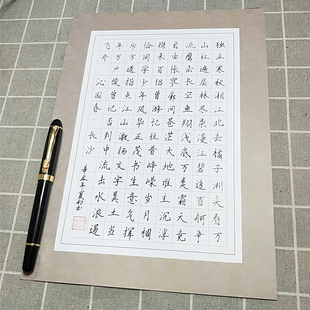 独立寒秋湘江北去橘子洲头看万
山红遍层林尽染漫江碧透百舸争
流鹰击长空鱼翔浅底万类霜天竞
自由怅寥廓问苍茫大地谁主沉浮
携来百侣曾游忆往昔峥嵘岁月稠
恰同学少年风华正茂书生意气挥
斥方遒指点江山激扬文字粪土当
年万户侯曾记否到中流击水浪遏
飞舟 沁园春 长沙